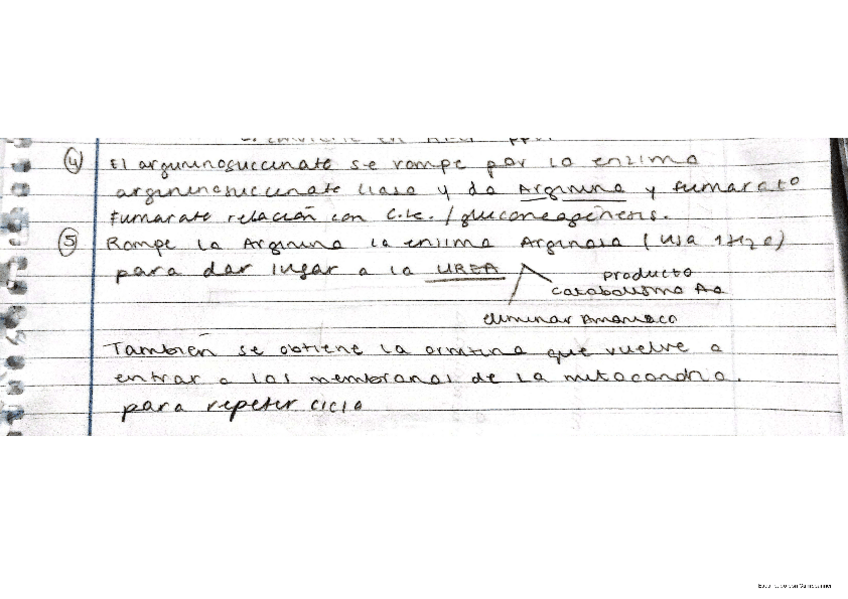 ④ El argininosuccinate se rompe por la enzima
argininosuccinate liasa y da Arginina y fumarato
Fumarate relación con C.K. / gluconeogénesis.
⑤ Rompe la Arginina la enzima Arginasa (usa 1H2O)
para dar lugar a la UREA
producto
catabolismo Aa
eliminar Amoniaco
También se obtiene la ornitina que vuelve a
entrar a las membranas de la mitocondria.
para repetir ciclo